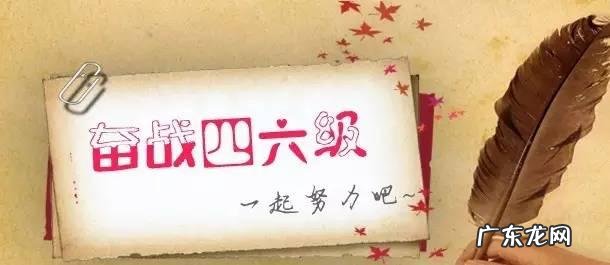 奋战四六级
一起努力吧~
广东龙网